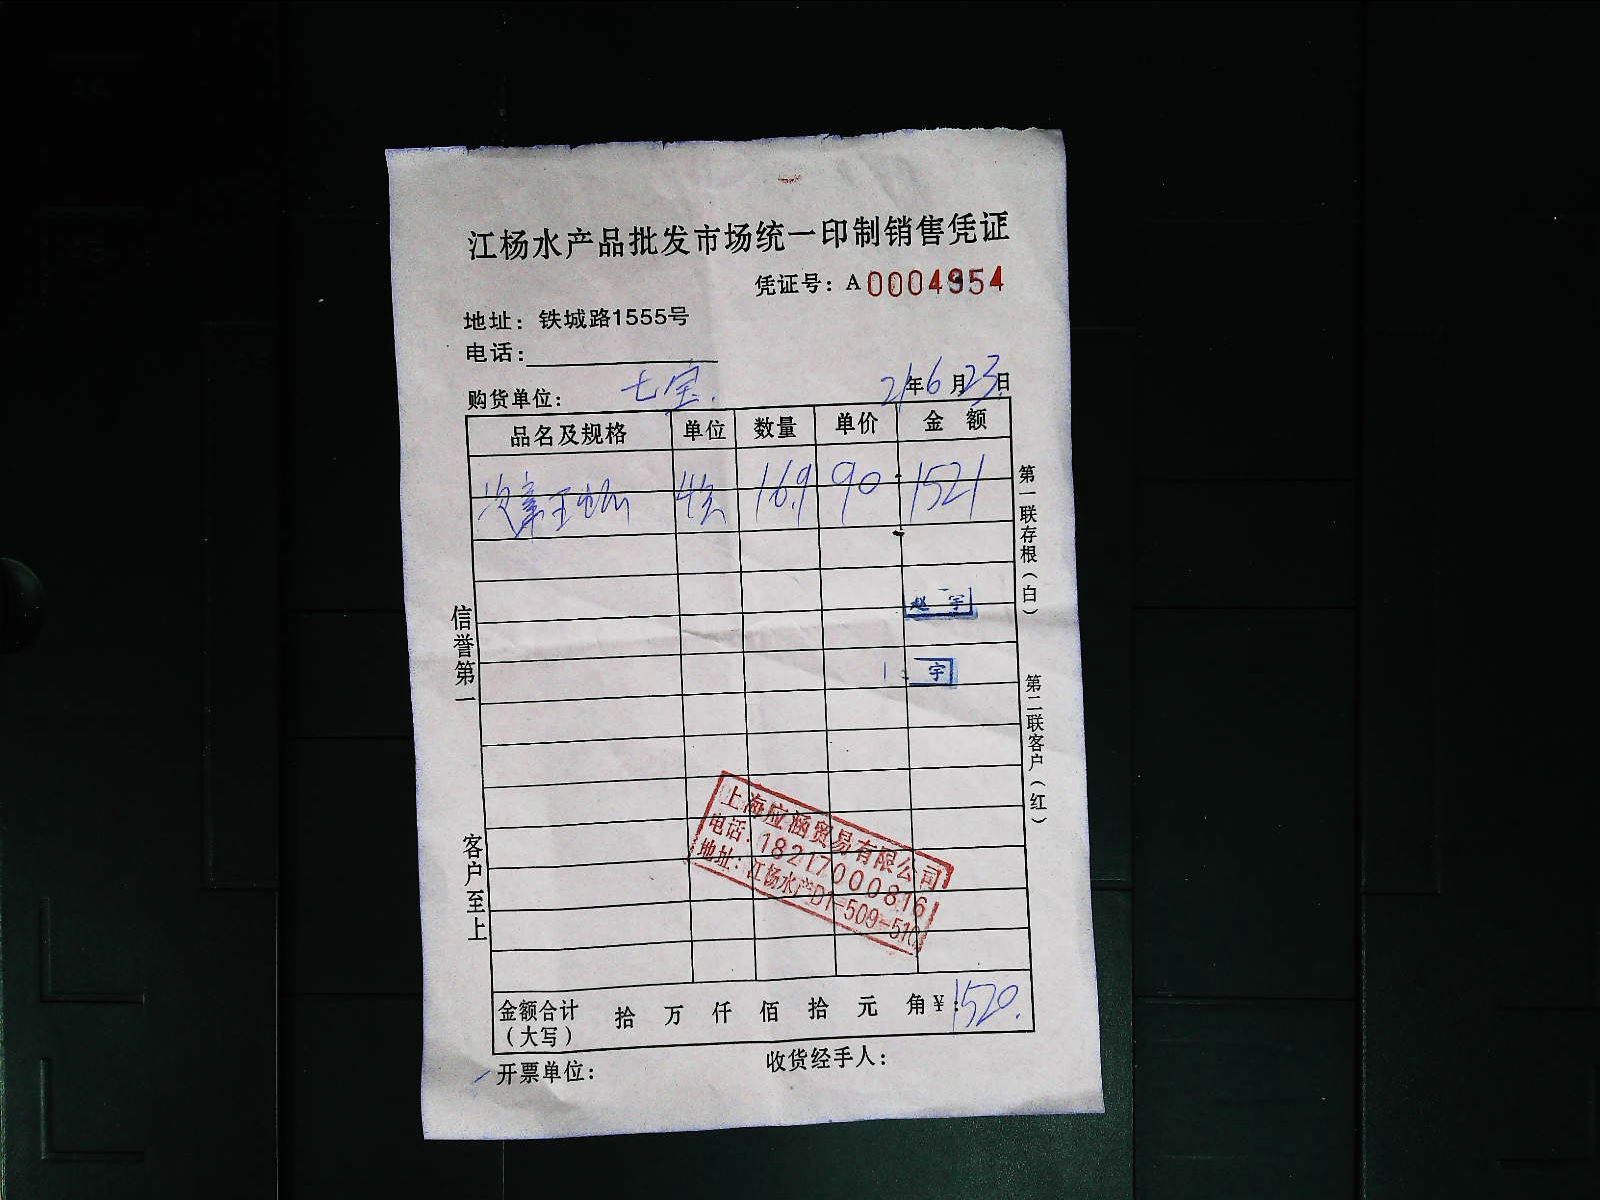 江杨水产品批发市场统一印制销售凭证
凭证号：A0004954
地址：铁城路1555号
电话：
购货单位：七宝. 21年6月23日
品名及规格 单位 数量 单价 金额
16.9 90 1521
赵 宇
宇
上海应涵贸易有限公司
电话：18217000816
地址：江杨水产D1-509-510
金额合计（大写） 拾 万 仟 佰 拾 元 角 ￥：1520.
开票单位： 收货经手人：
信誉第一
客户至上
第一联存根（白）
第二联客户（红）